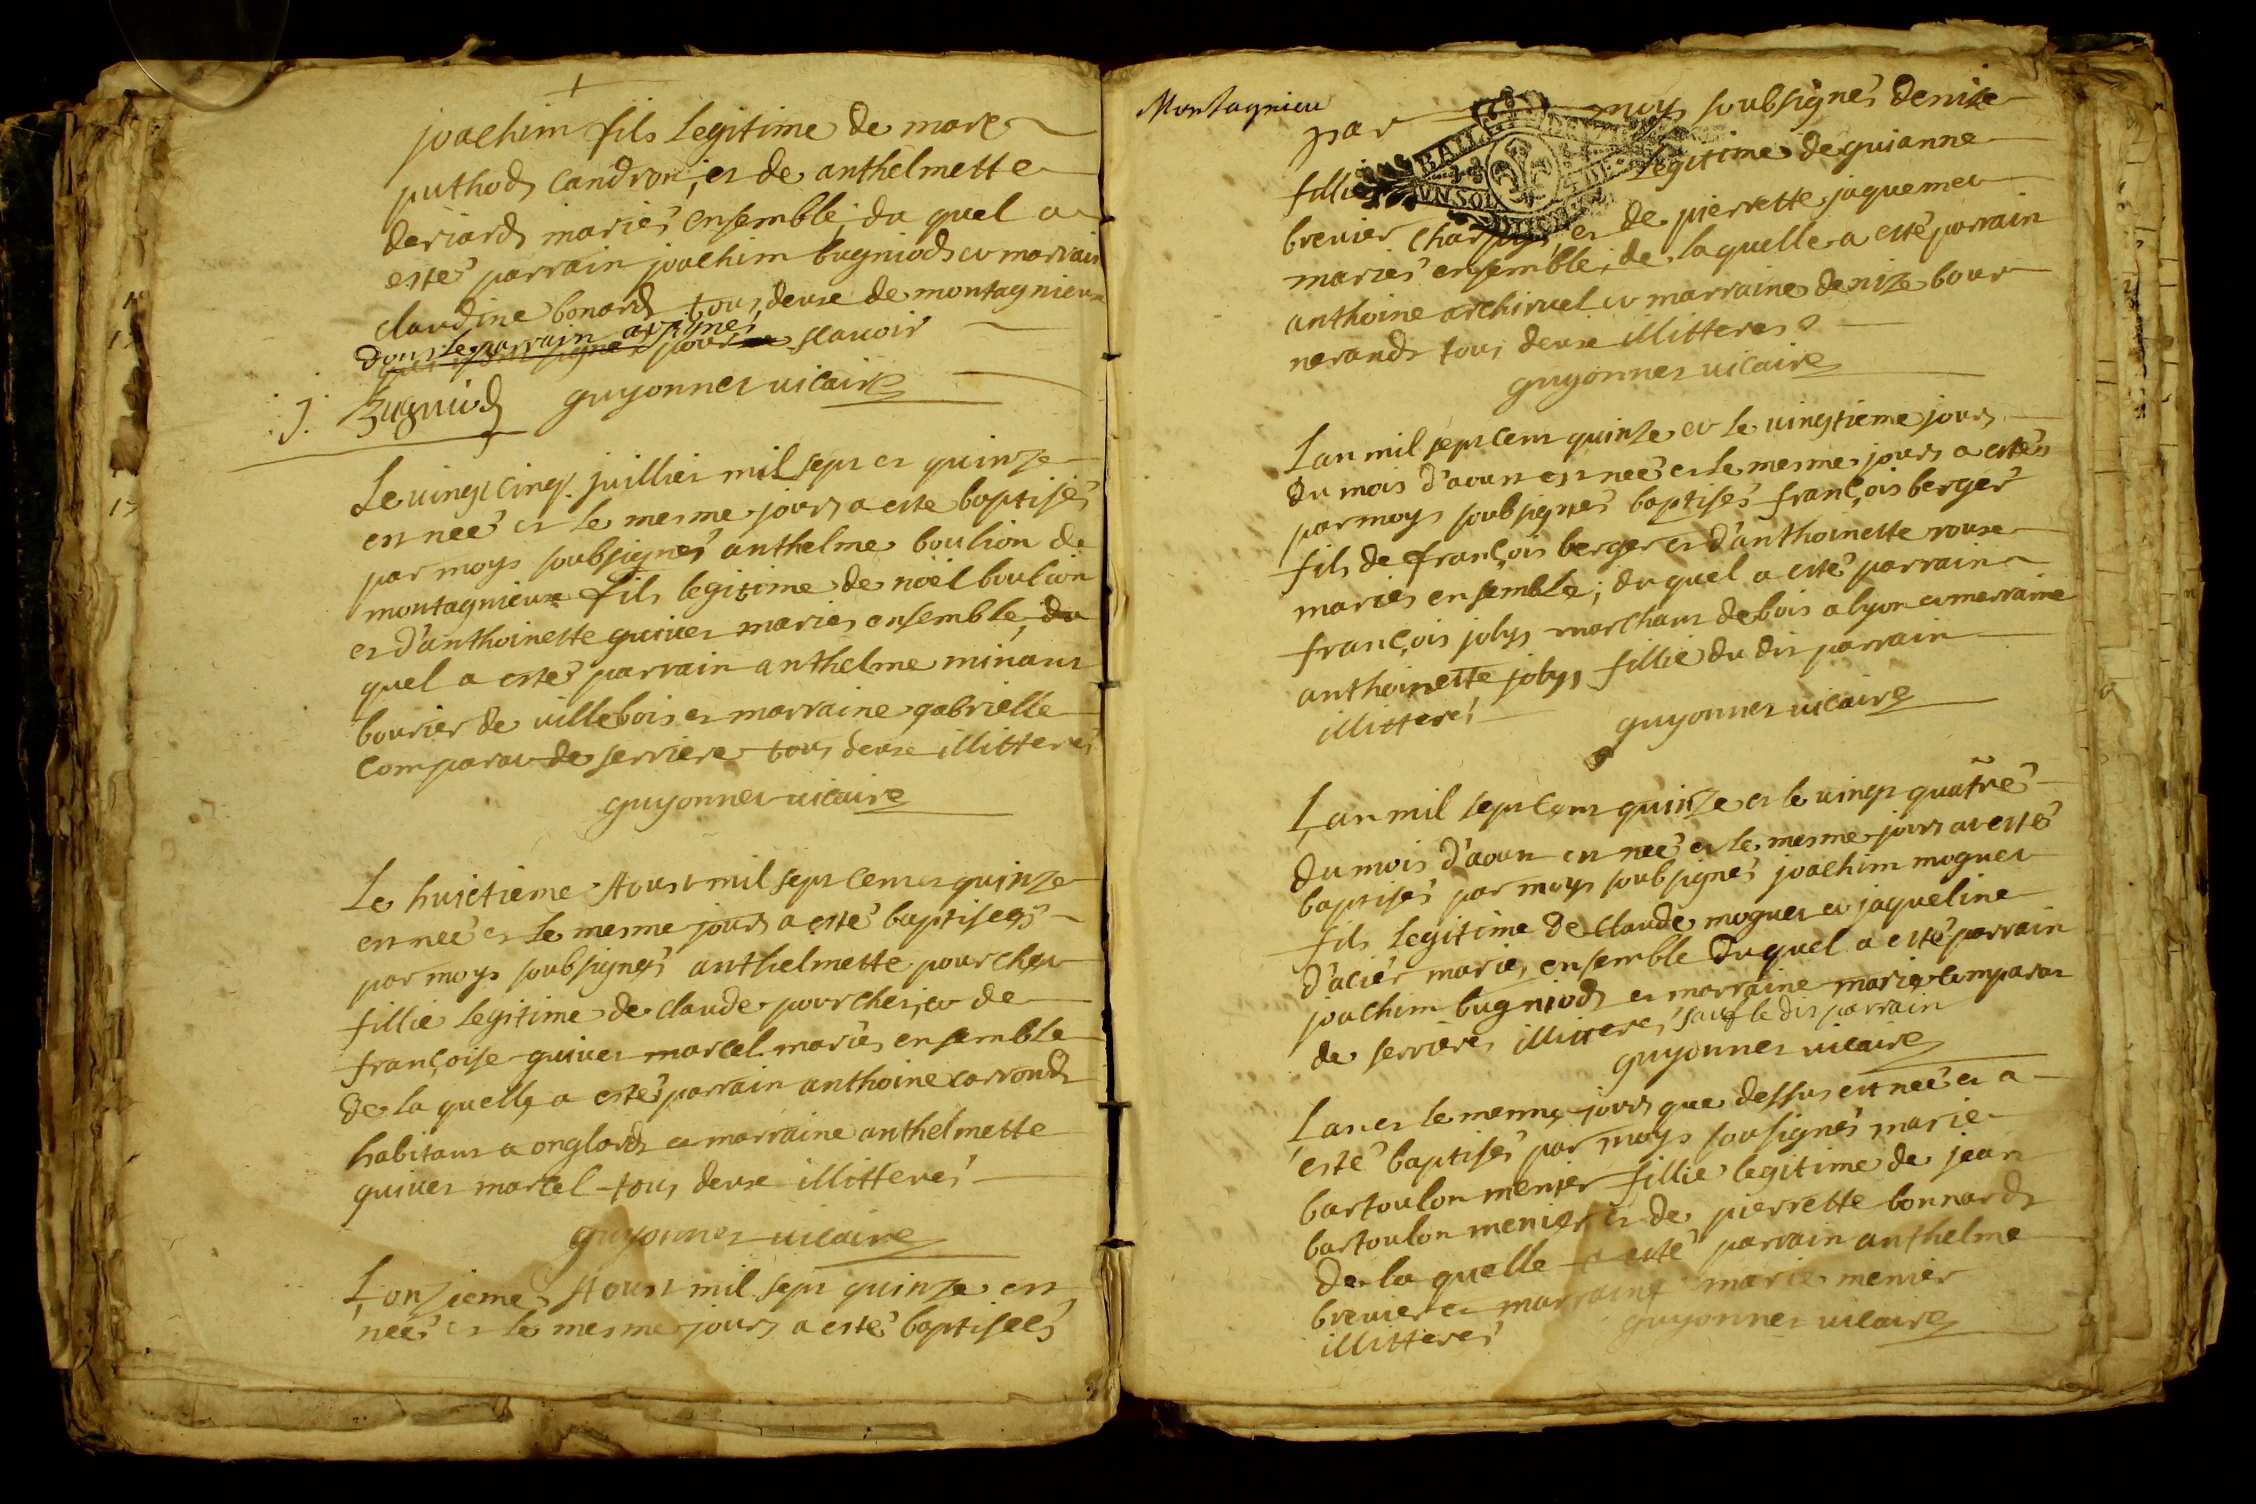 joachim fils legitime de marc
puthod candron, et de anthelmette
deriard mariés ensemble, du quel a
estés parrain joachim bugniod et marrain
claudine bonard tous deux de montagnieux
dont le parrain a signés
pour scavoir
J. Bugniod guyonnet vicaire
Le vingt cinq juillier mil sept et quinze
est neé et le mesme jours a esté baptisés
par moys soubsignés anthelme boulion de
montagnieux fils legitime de noël boulion
et d'anthoinette quivet mariés ensemble, du
quel a estés parrain anthelme minant
bourier de villebois et marraine gabrielle
comparat de serriere tous deux illitteres
guyonnet vicaire
Le huictieme Aoust mil sept cent et quinze
est neé et le mesme jours a esté baptiseés
par moys soubsignés anthelmette pourchet
fillie legitime de claude pourchet, et de
françoise quivet marcel mariés ensemble
de la quelle a estés parrain anthoine carrond
habitant a onglard et marraine anthelmette
quivet marcel tous deux illitterés
guyonnet vicaire
L'onzieme Aoust mil sept quinze est
neés et le mesme jours a estés baptiseés
Montagnieu
par moys soubsignés denise
fillie legitime de guianne
brevier charpy, et de pierrette jaquemet
mariés ensemble, de la quelle a esté parrain
anthoine archiruel et marraine denize bour
nerand tous deux illitteres
guyonnet vicaire
Lan mil sept cent quinze et le vingtieme jours
du mois d'aoust est neé et le mesme jours a estés
par moys soubsignés baptisés françois berger
fils de françois berger et d'anthoinette roux
mariés ensemble, du quel a estés parrain
françois jolys marchant de bois a lyon et merraine
anthoinette jolys fillie du dit parrain
illitterés
guyonnet vicaire
Lan mil sept cent quinze et le vingt quatre
du mois d'aoust est neé et le mesme jours at estés
baptisés par moys soubsignés joachim moguet
fils legitime de claude moguet et jaqueline
d'acier mariés ensemble duquel a esté parrain
joachim bugniod et marraine marie comparat
de serrieres illitteres sauf le dit parrain
guyonnet vicaire
Lan et le mesme jours que dessus est neé et a
esté baptisés par moys sousignés marie
bartoulon menier fillie legitime de jean
bartoulon menier et de pierrette bonnard
de la quelle a esté parrain anthelme
brevier et marraine marie menier
illitterés guyonnet vicaire